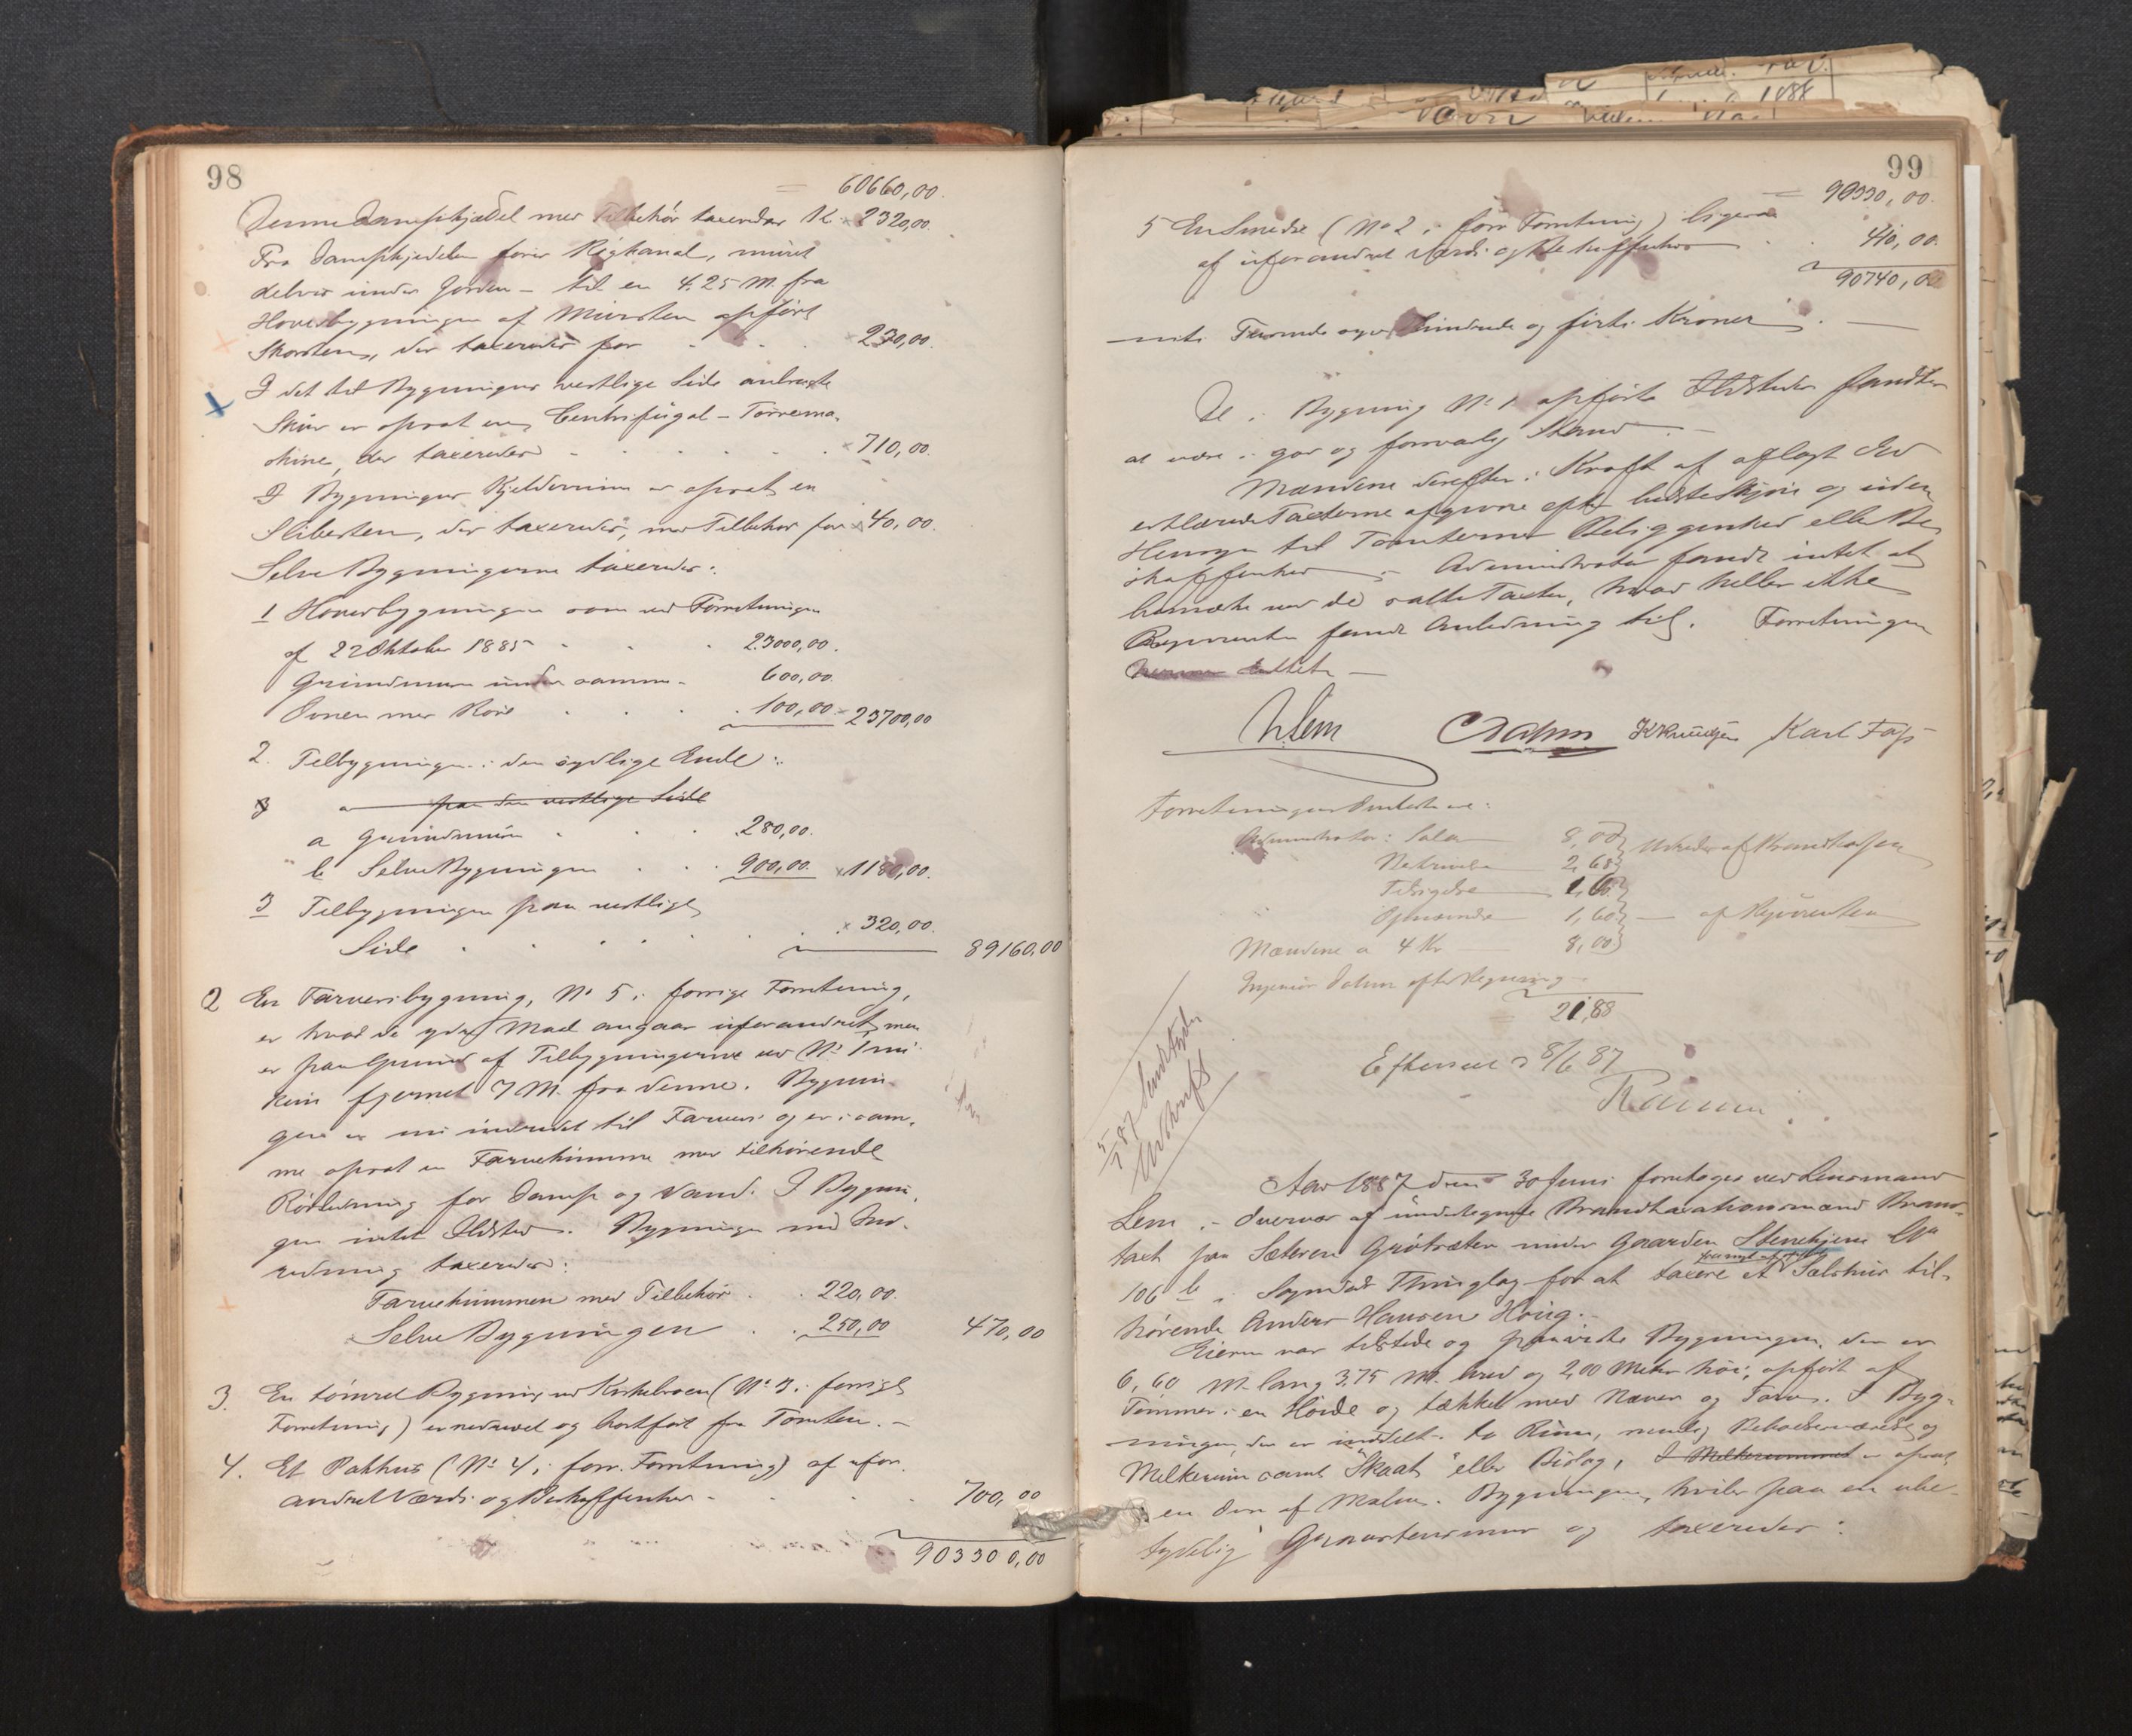 98
60660,00.
Denne Dampkjedel med Tilbehör taxeredes Kr. 2320,00.
Fra Dampkjedelen förer Rögkanal, muret
delvis under Jorden – til en 4.25 M. fra
Hovedbygningen af Mursten opført
Skorsten, der taxeredes for 230,00.
I det ved Bygningens vestlige Side anbragte
Skur er opsat en Centrifugal-Törrema-
skine, der taxeredes 710,00.
I Bygningens Kjelderrum er opsat en
Slibesten, der taxeredes, med Tilbehør for 40,00.
Selve Bygningerne taxeredes:
1 Hovedbygningen som ved Forretningen
af 22 Oktober 1885 23000,00.
Grundmuren under samme 600,00.
Ovnen med Rör 100,00 23700,00
2. Tilbygningen i den sydlige Ende:
3 a paa den vestlige Side
a Grundmuren 280,00.
b Selve Bygningen 900,00 1180,00.
3 Tilbygningen paa vestlige
Side 320,00.
89160,00
2 En Farveribygning, No 5 i forrige Forretning,
er hvad de ydre Maal angaar uforandret, men
er paa Grund af Tilbygningerne ved No 1 nu
kun fjernet 7 M. fra denne. Bygnin-
gen er nu indredet til Farveri og er i sam-
me opsat en Farvekumme med tilhørende
Rörledning for Damp og Vand. I Bygnin-
gen intet Ildsted. Bygningen med Ind-
redning taxeredes:
Farvekummen med Tilbehör 220,00.
Selve Bygningen 250,00 470,00
3. En tömret Bygning ved Kirkebroen (No 3 i forrige
Forretning) er nedrevet og bortfört fra Tomten. –
4. Et Pakhus (No 4 i forr. Forretning) af ufor-
andret Værdi og Beskaffenhed 700,00
903300,00
99
90330,00.
5 En Smedie (No 2 i forr Forretning) ligesaa
af uforandret Værdi og Beskaffenhed 410,00.
90740,00
– niti Tusinde syv Hundrede og firti Kroner. –
De i Bygning No 1 opførte Ildsteder fandtes
at være i god og forsvarlig Stand. –
Mændene derefter i Kraft af aflagt Ed
erklærede Taxterne afgivne efter bedste Skjön og uden
Hensyn til Tomternes Beliggenhed eller Be-
skaffenhed. – Administrator fandt intet at
bemærke ved de satte Taxter, hvad heller ikke
Rekvirenten fandt Anledning til. Forretningen
hermed sluttet –
Lem Dahm K Knudsen Karl
Forretningens Omkostninger:
Administrator: Salær 8,00
2,68
Tilsigelse 1,60
Opnævnelse 1,60 – af Rekvirenten
Mændene a 4 Kr 8,00
Ingeniör Dahm efter Regning
21,88
Efterseet 8/6 87
5/7 87
Udskrift
Aar 1887 den 30 Juni foretoges ved Lensmand
Lem i Overvær af undertegnede Brandtaxationsmænd Brand-
taxt paa Sæteren Grötsæter under Gaarden Stenehjem
106 b i Sogndal Thinglag for at taxere et Sælshus til-
hörende Anders Hansen Haug. –
Eieren var tilstede og paaviste Bygningen, der er
6,60 M. lang 3.75 M. bred og 2,00 Meter höi; opført af
Tømmer i en Höide og tækket med Næver og Torv. I Byg-
ningen, der er inddelt i to Rum, nemlig Beboelsesværelse og
Melkerum samt "Skaat" eller Bislag, I Melkerummet er opsat
en Ovn af Malm. Bygningen, hviler paa en ube-
tydelig Graastensmur og taxeredes: